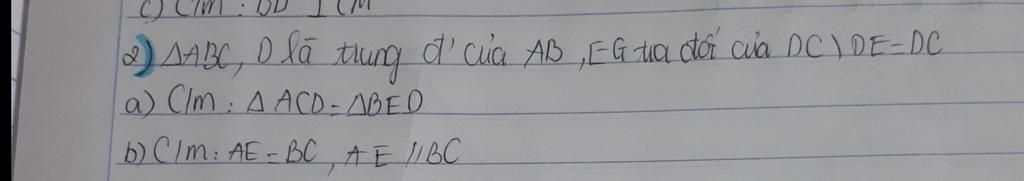 c) C/m : BD ⊥ CM
2) ΔABC, D là trung đ' của AB, E G tia đối của DC \ DE = DC
a) C/m : Δ ACD = ΔBED
b) C/m : AE = BC, AE // BC